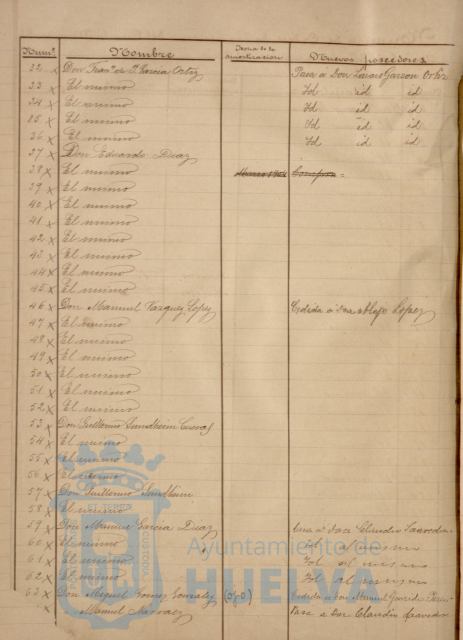 Num.º Nombre Fecha de la amortizacion Nuevos poseedores
32 x Don Fran.co de P. Garcia Ortiz Pasa a Don Lazaro Garzon Ortiz
33 x El mismo Id id id
34 x El mismo Id id id
35 x El mismo Id id id
36 x El mismo Id id id
37 x Don Eduardo Diaz
38 x El mismo
39 x El mismo
40 x El mismo
41 x El mismo
42 x El mismo
43 x El mismo
44 x El mismo
45 x El mismo
46 x Don Manuel Vazquez Lopez Cedida a Don Alejo Lopez
47 x El mismo
48 x El mismo
49 x El mismo
50 x El mismo
51 x El mismo
52 x El mismo
53 x Don Guillermo Sundheim Cuevas
54 x El mismo
55 x El mismo
56 x El mismo
57 x Don Guillermo Sundheim
58 x El mismo
59 x Don Manuel Garcia Diaz a Don Claudio Saavedra
60 x El mismo Id al mismo
61 x El mismo Id al mismo
62 x El mismo Id al mismo
63 x Don Miguel Gomez Gonzalez Cedida a Don Manuel Gonzalez
x Manuel Narvaez Pasa a Don Claudio Saavedra
Ayuntamiento de
HUELVA